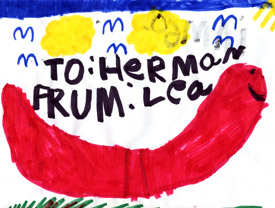 TO: HERMAN
FRUM: Lea